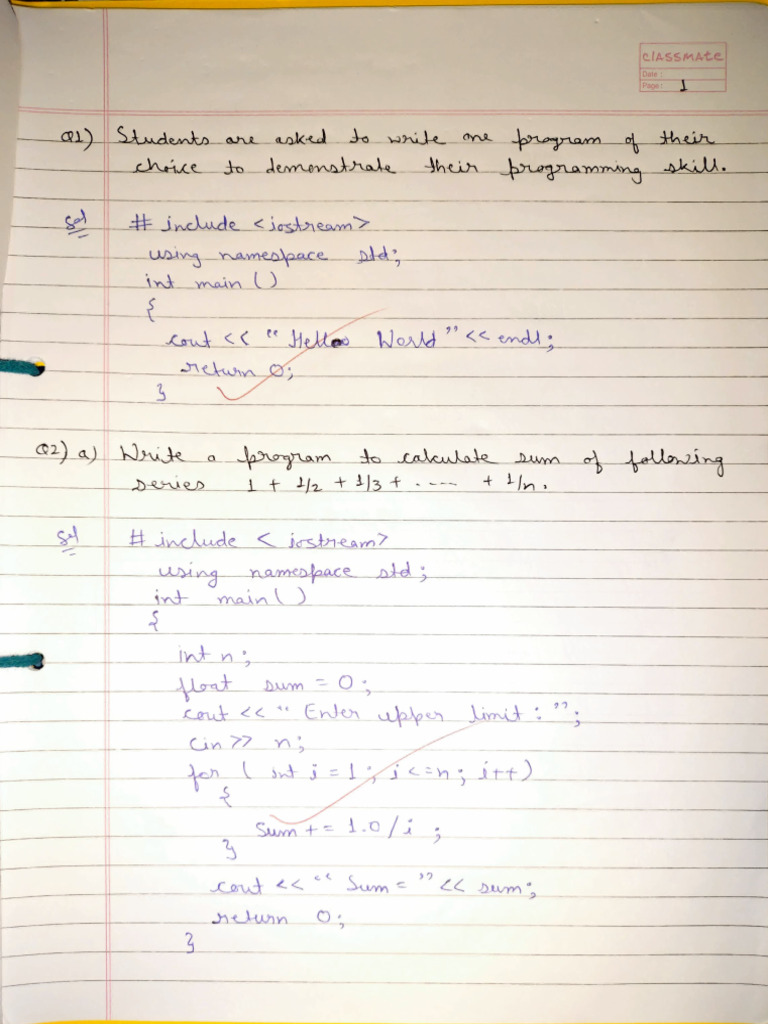 classmate
Date :
Page : 1
Q1) Students are asked to write one program of their
choice to demonstrate their programming skill.
Sol # include <iostream>
using namespace std;
int main ()
{
cout << "Hello World" << endl;
return 0;
}
Q2) a) Write a program to calculate sum of following
series 1 + 1/2 + 1/3 + ...... + 1/n.
Sol # include < iostream>
using namespace std;
int main()
{
int n;
float sum = 0;
cout << " Enter upper limit : ";
cin >> n;
for ( int i = 1 ; i <= n ; i++)
{
Sum += 1.0 / i ;
}
cout << " Sum = " << sum;
return 0;
}